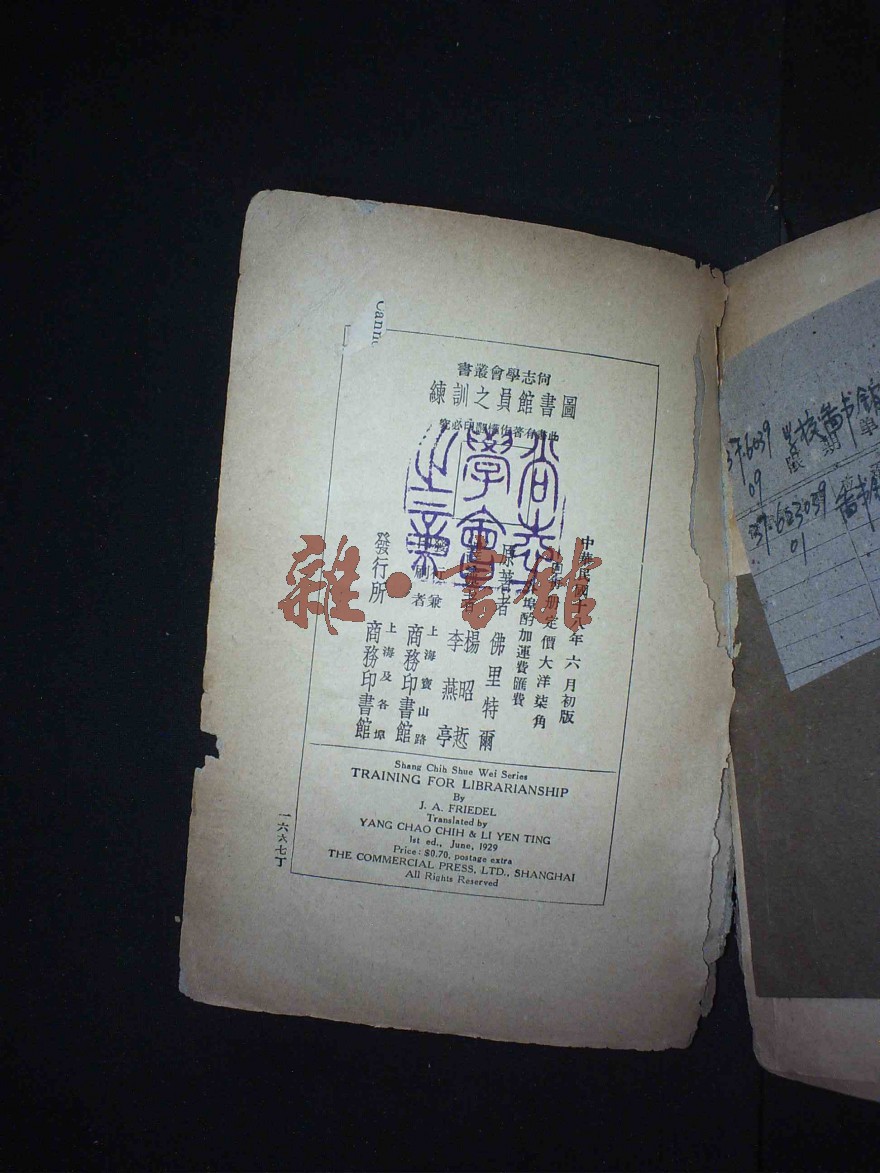 尙志學會叢書
圖書館員之訓練
此書有著作權翻印必究
中華民國十八年六月初版
册定價大洋柒角
埠酌加運費匯費
原著者 佛里特爾
者 楊昭悊
李燕亭
兼
印刷者 上海寶山路
商務印書館
發行所 上海及各埠
商務印書館
尚志
學會
之章
雜·書館
Shang Chih Shue Wei Series
TRAINING FOR LIBRARIANSHIP
By
J. A. FRIEDEL
Translated by
YANG CHAO CHIH & LI YEN TING
1st ed., June, 1929
Price: $0.70, postage extra
THE COMMERCIAL PRESS, LTD., SHANGHAI
All Rights Reserved
一六六七丁
Canno